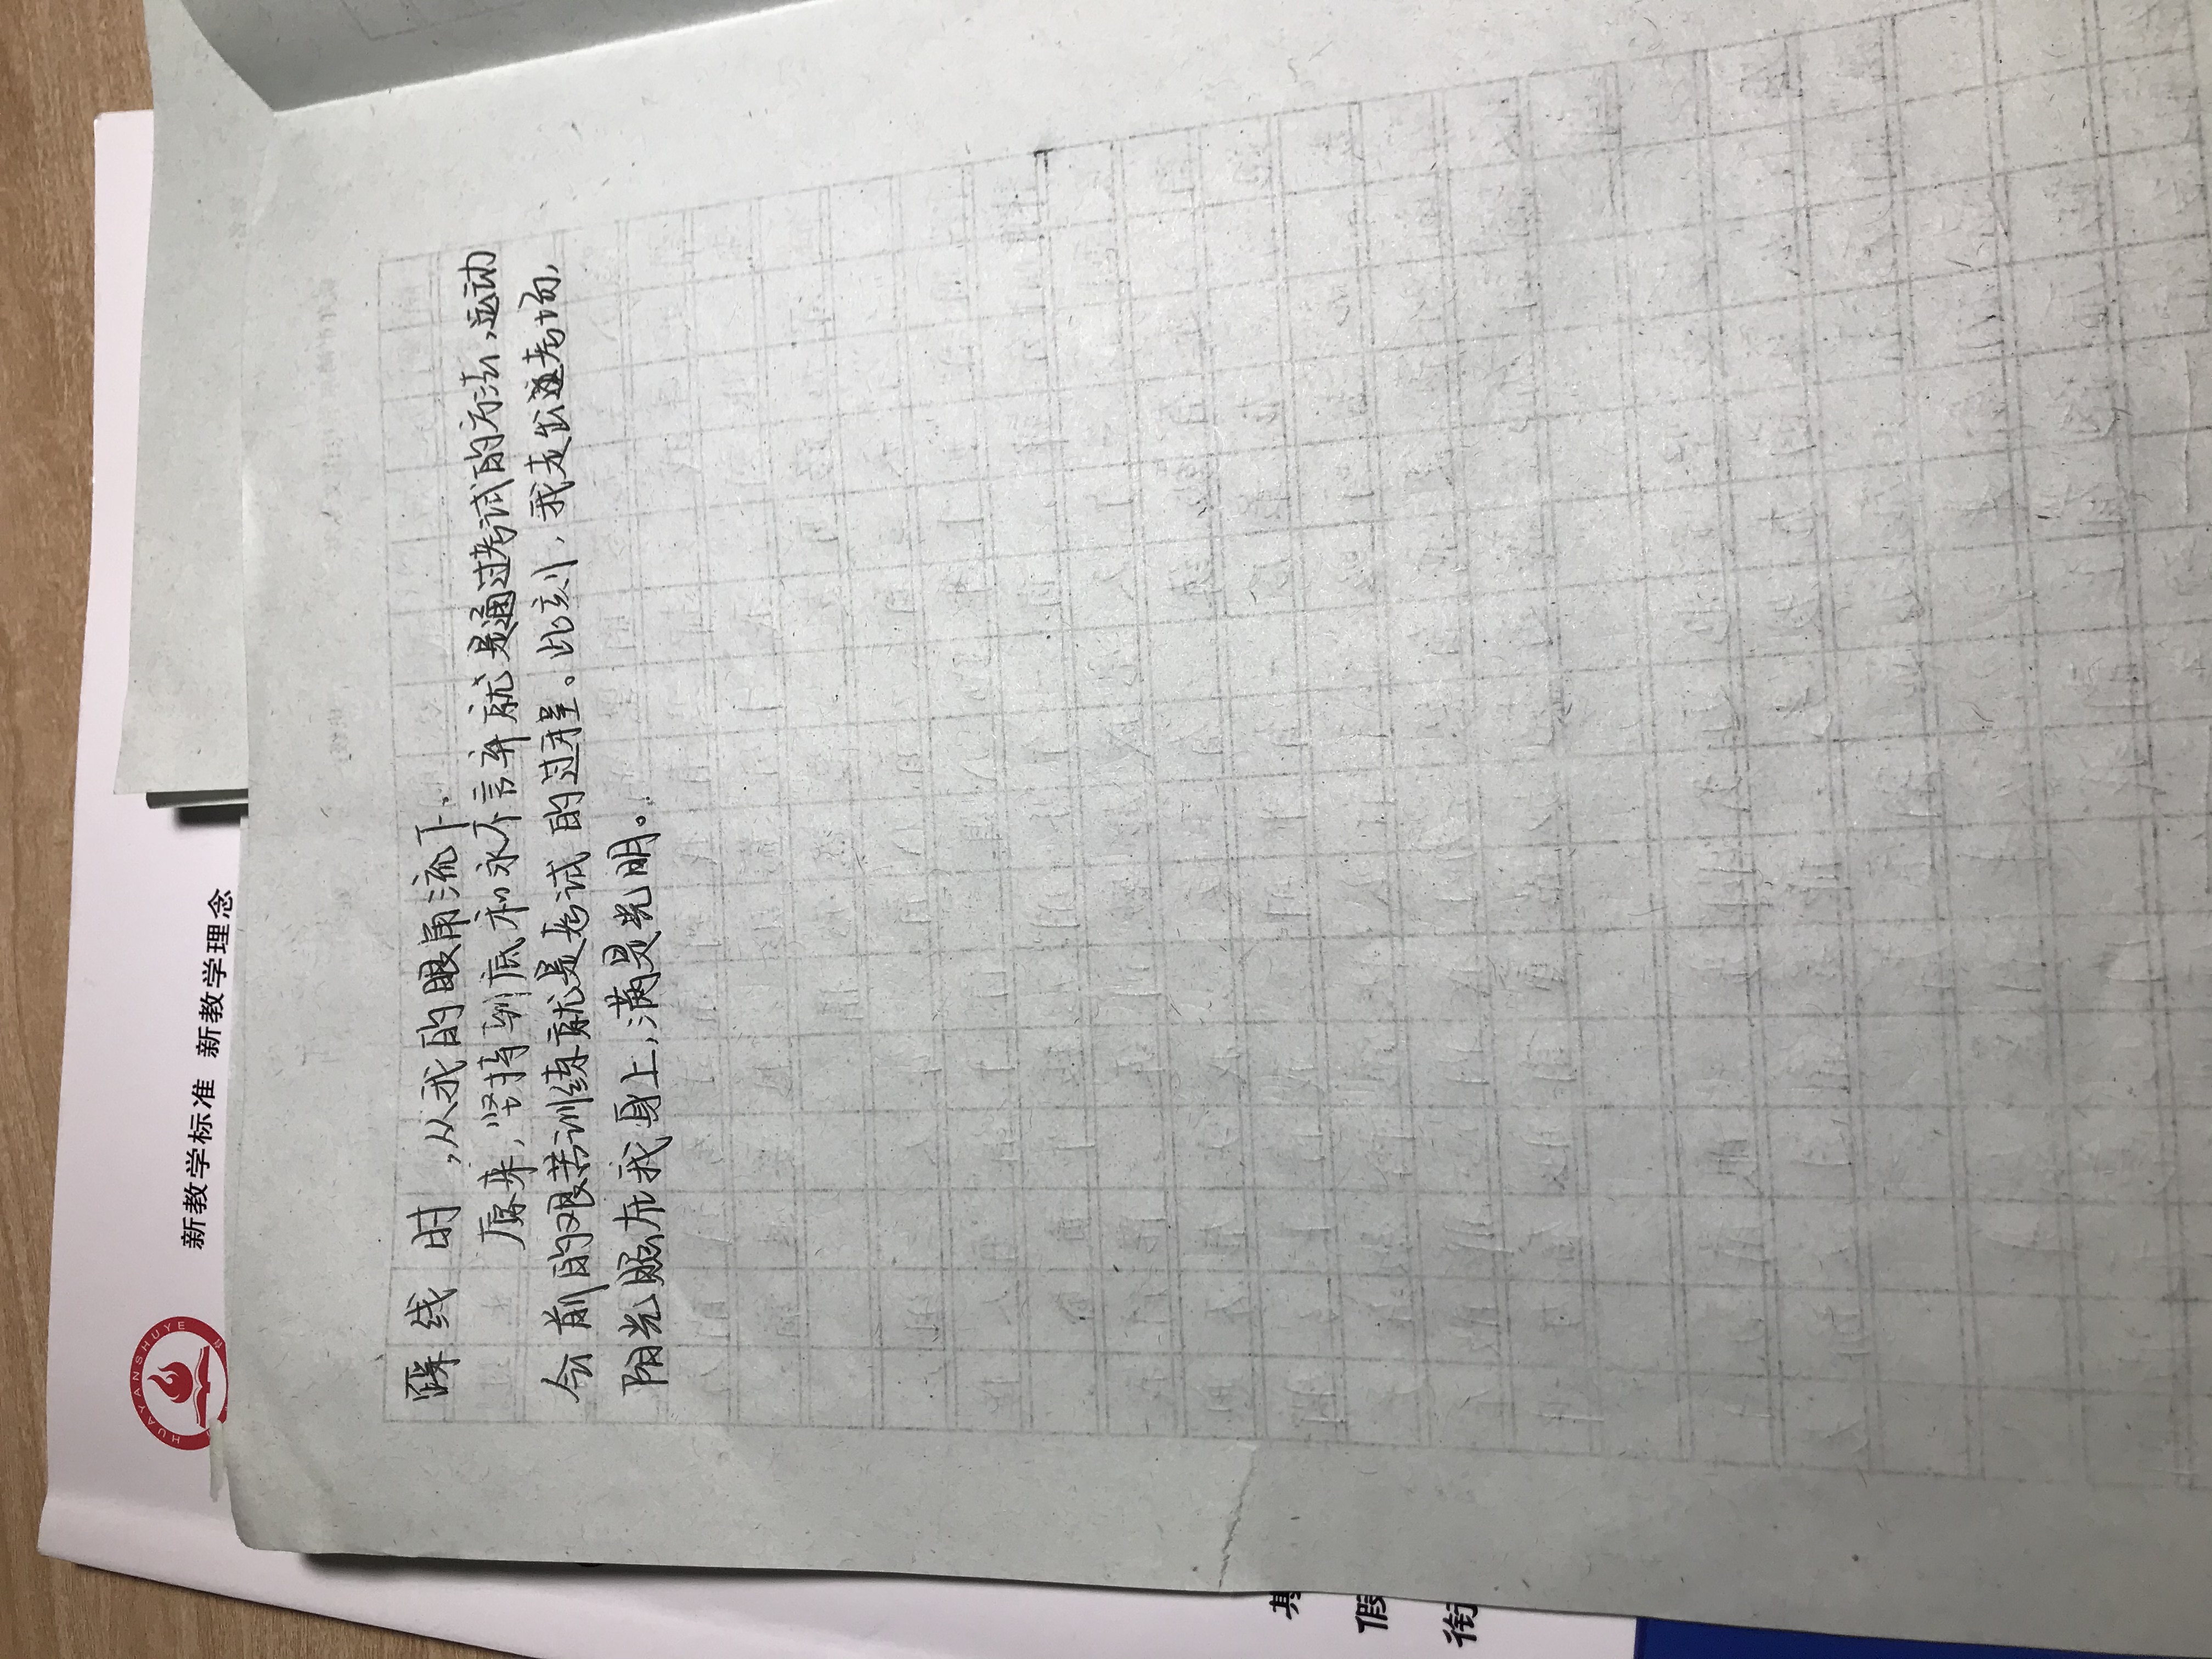 踩线时,从我的眼角流下.
原来,坚持到底和永不言弃就是通过考试的方法,运动
会前的艰苦训练就是考试的过程。此刻,我走出这考场,
阳光照在我身上,满是光明。
新教学标准 新教学理念
HUAYANSHUYE
假
衔